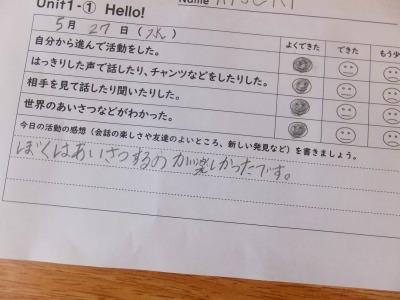 Unit1-① Hello!
Name
5月27日(水)
よくできた できた もう少
自分から進んで活動をした。
はっきりした声で話したり、チャンツなどをしたりした。
相手を見て話したり聞いたりした。
世界のあいさつなどがわかった。
今日の活動の感想(会話の楽しさや友達のよいところ、新しい発見など)を書きましょう。
ぼくはあいさつするのが楽しかったです。